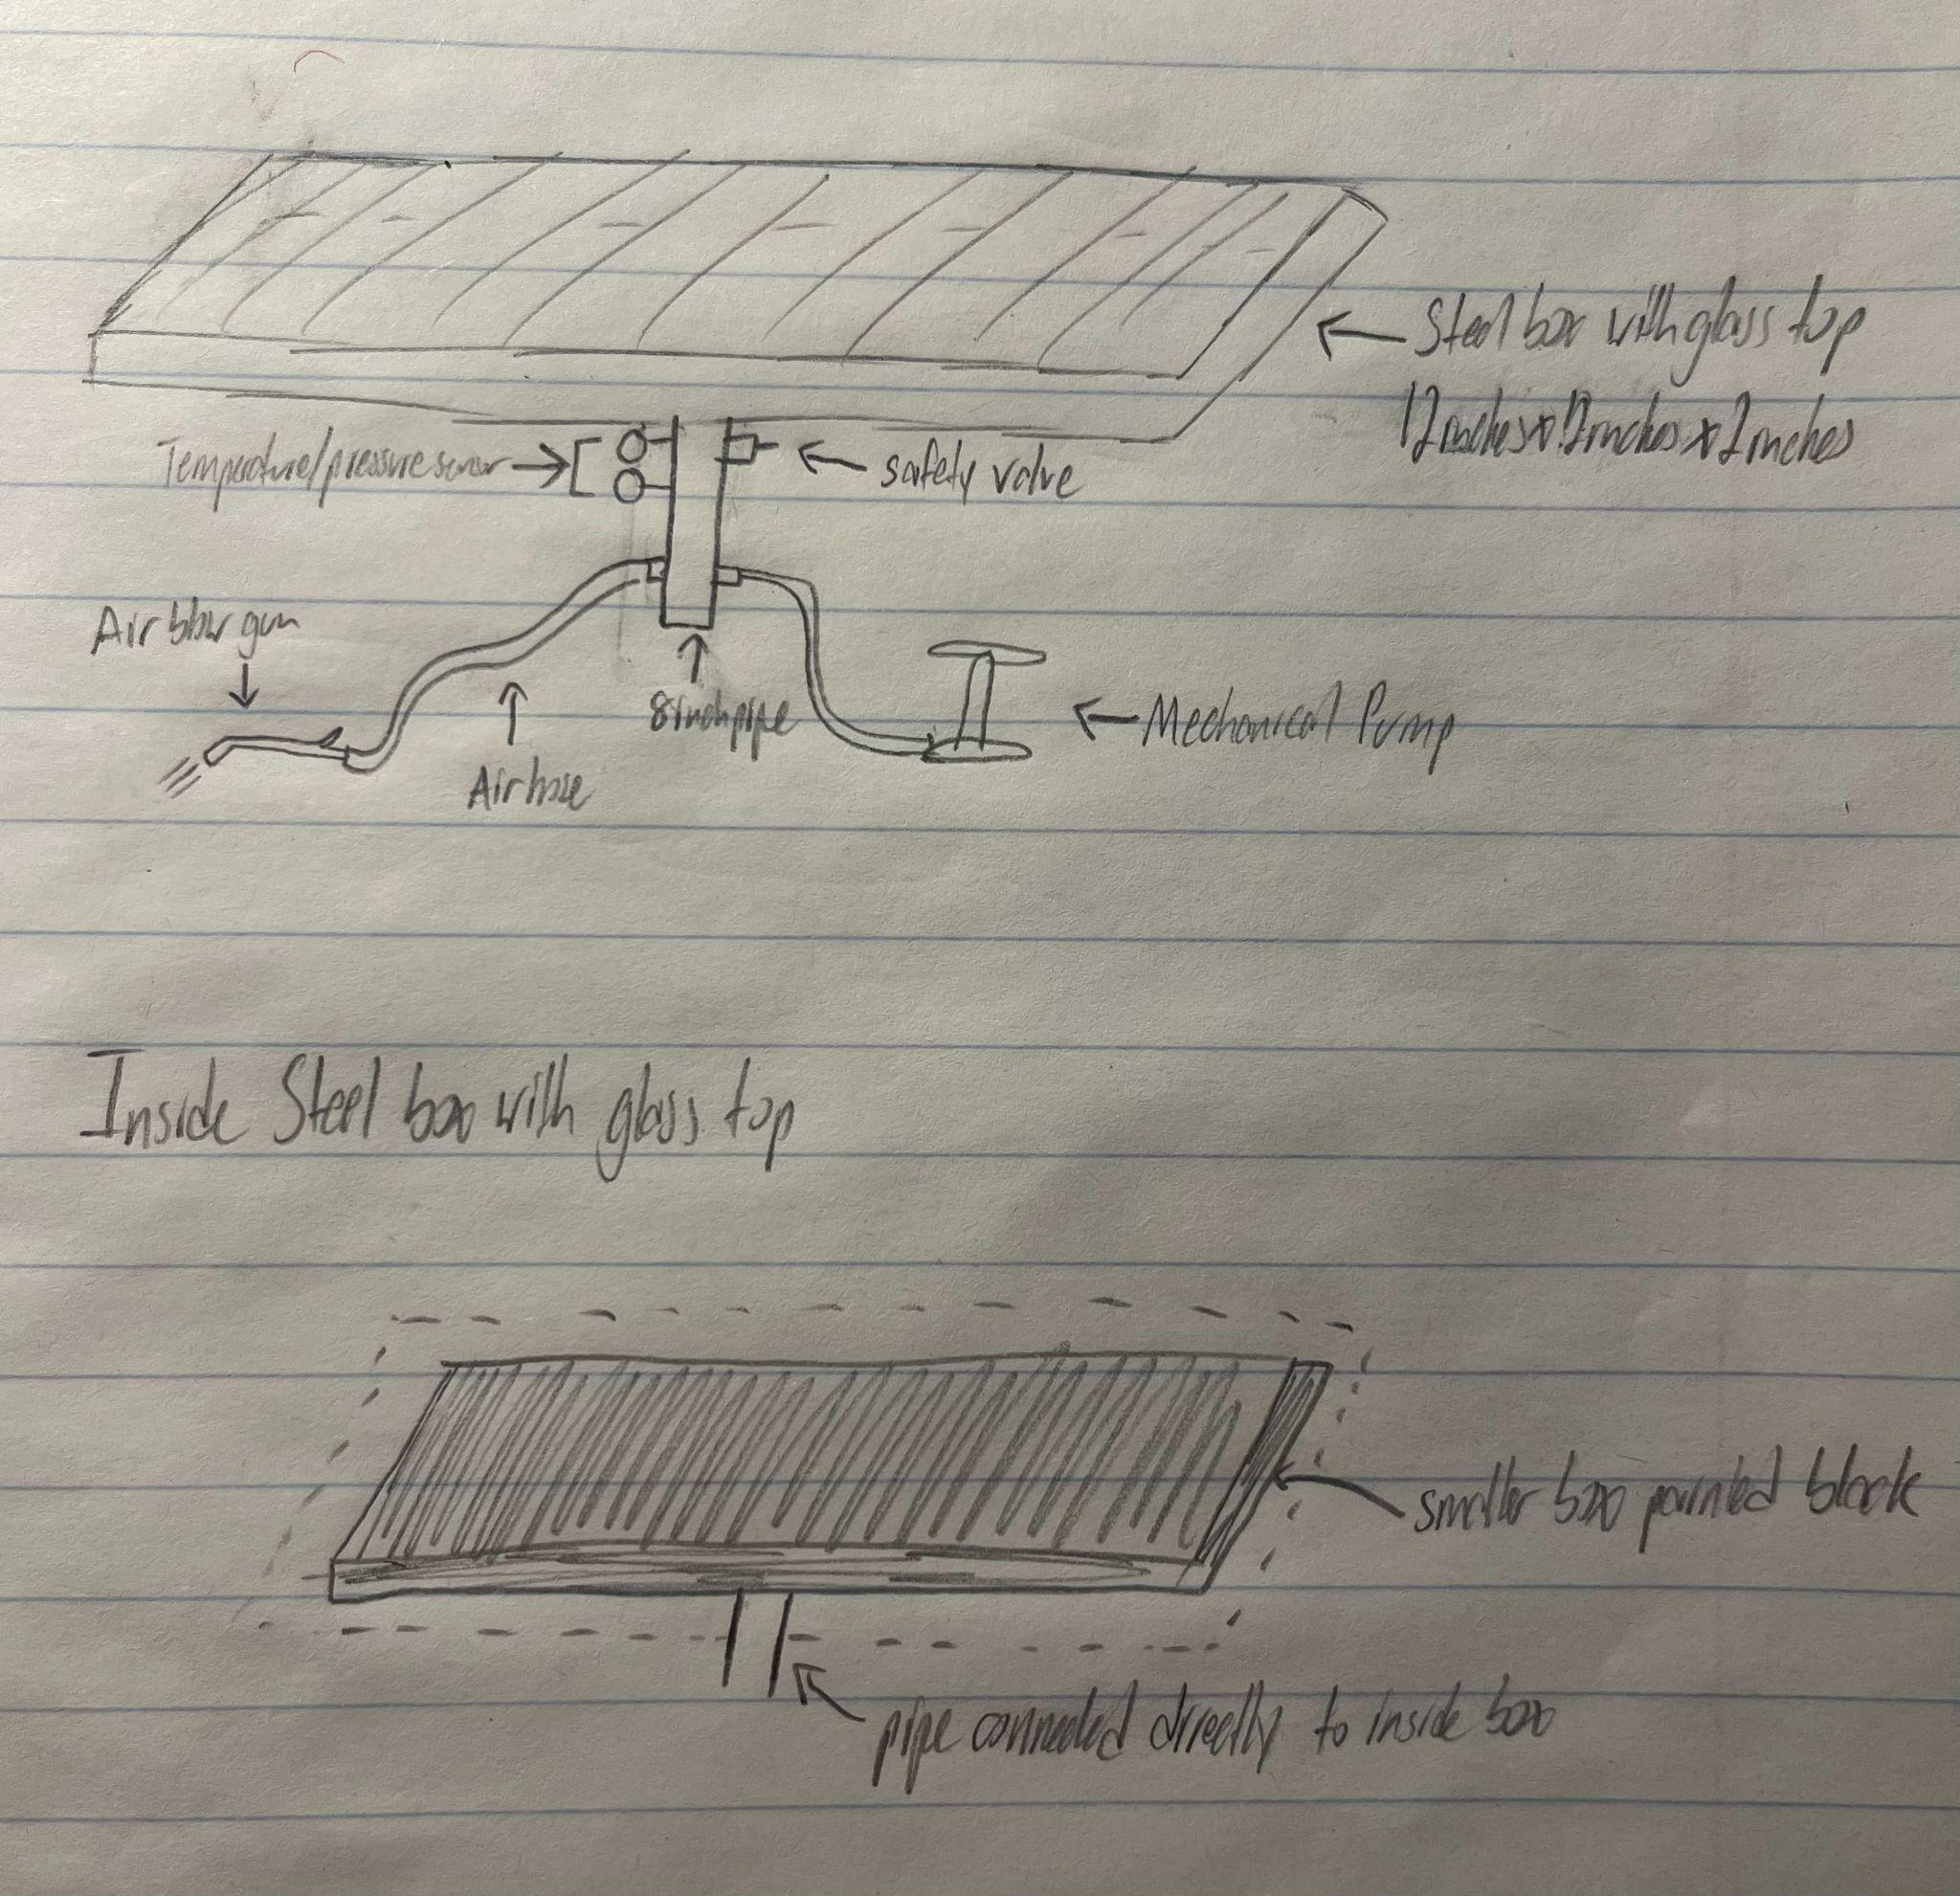 Steel box with glass top
12inches x 12inches x 2inches
Temperature/pressure sensor
safety valve
Air blow gun
8 inch pipe
Mechanical Pump
Air hose
Inside Steel box with glass top
smaller box painted black
pipe connected directly to inside box